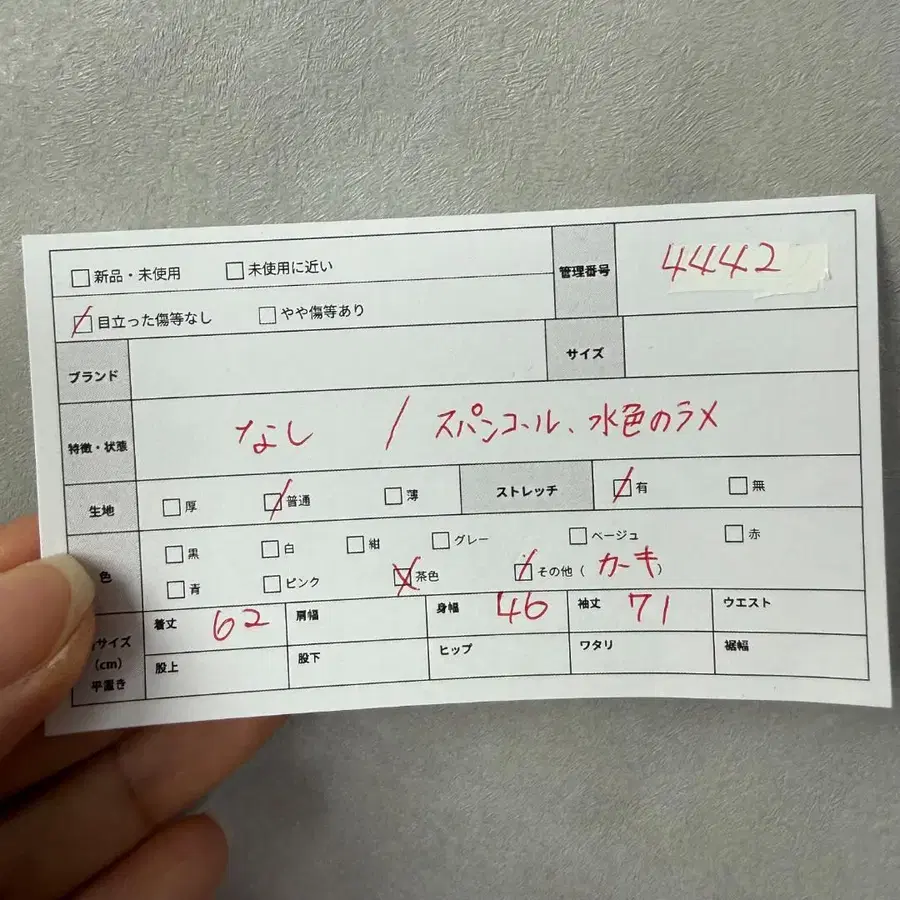 □新品・未使用 □未使用に近い
管理番号 4442
☑目立った傷等なし □やや傷等あり
ブランド サイズ
特徴・状態 なし / スパンコール、水色のラメ
生地 □厚 ☑普通 □薄 ストレッチ ☑有 □無
色 □黒 □白 □紺 □グレー □ベージュ □赤
□青 □ピンク ☒茶色 ☑その他(カーキ)
サイズ
(cm)
平置き
着丈 62 肩幅 身幅 46 袖丈 71 ウエスト
股上 股下 ヒップ ワタリ 裾幅